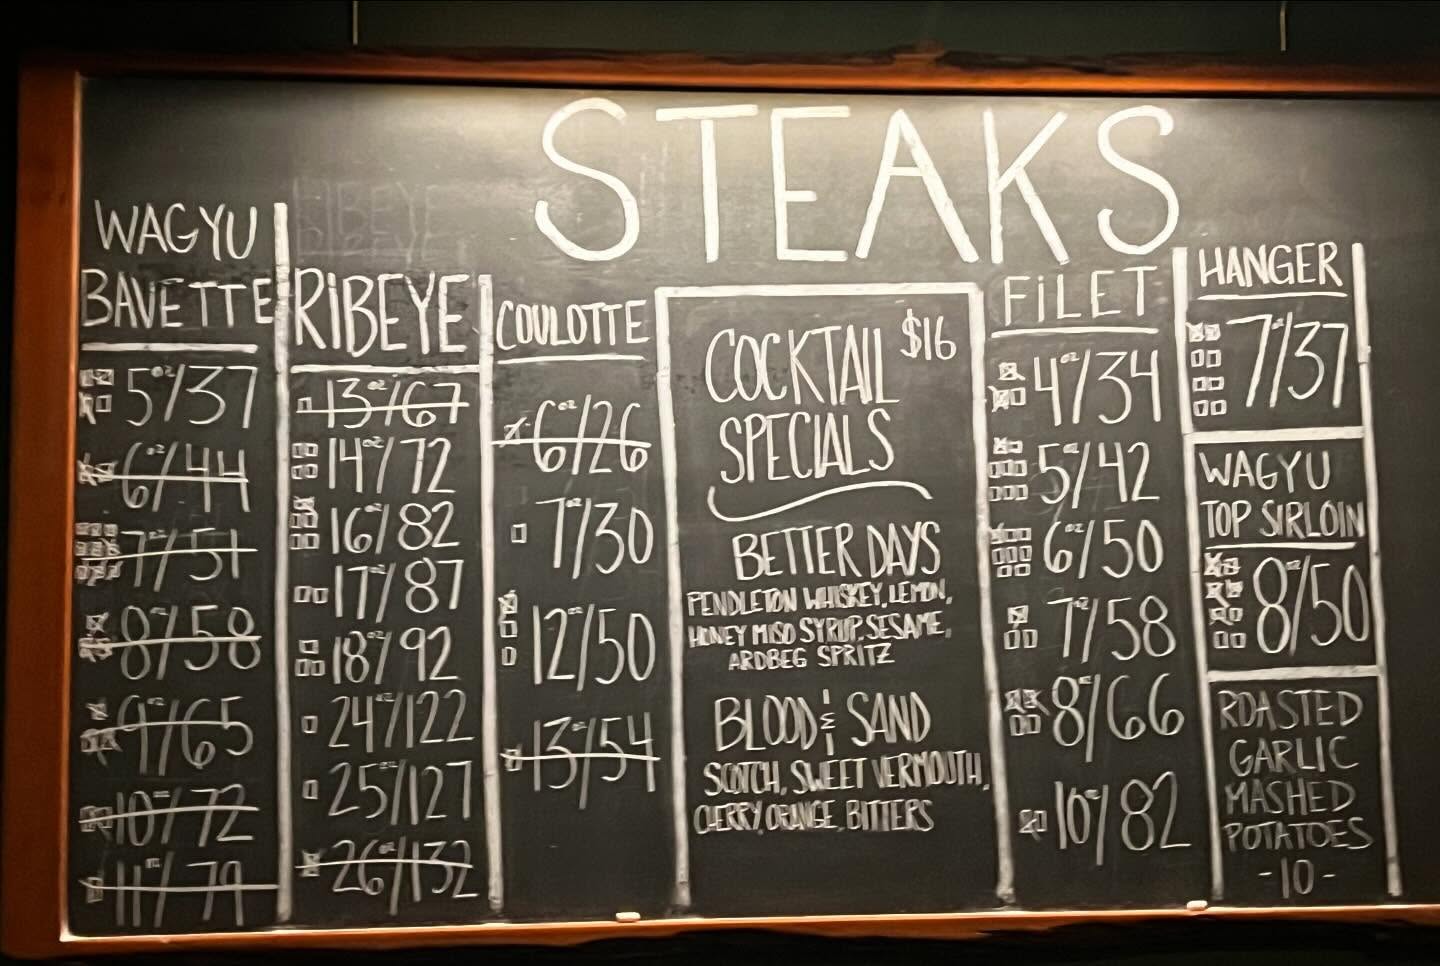 STEAKS
WAGYU
BAVETTE
5oz/37
6oz/44
7oz/51
8oz/58
9oz/65
10oz/72
11oz/79
RIBEYE
RIBEYE
13oz/67
14oz/72
16oz/82
17oz/87
18oz/92
24oz/122
25oz/127
26oz/132
COULOTTE
6oz/26
7oz/30
12oz/50
13oz/54
COCKTAIL $16
SPECIALS
BETTER DAYS
PENDLETON WHISKEY, LEMON,
HONEY MISO SYRUP, SESAME,
ARDBEG SPRITZ
BLOOD & SAND
SCOTCH, SWEET VERMOUTH,
CHERRY, ORANGE, BITTERS
FILET
4oz/34
5oz/42
6oz/50
7oz/58
8oz/66
10oz/82
HANGER
7oz/37
WAGYU
TOP SIRLOIN
8oz/50
ROASTED
GARLIC
MASHED
POTATOES
-10-